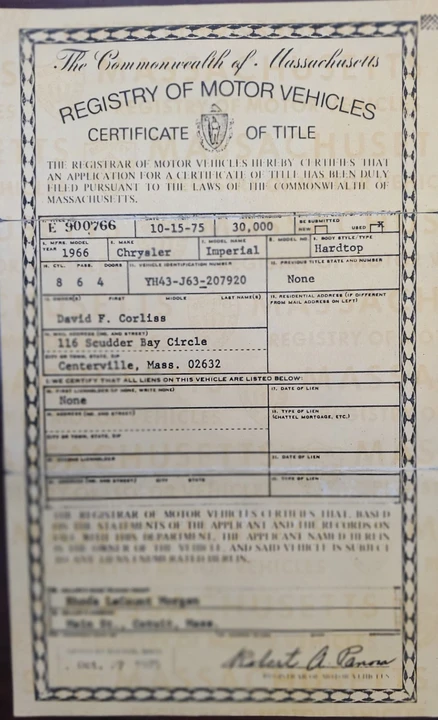 The Commonwealth of Massachusetts
REGISTRY OF MOTOR VEHICLES
CERTIFICATE OF TITLE
THE REGISTRAR OF MOTOR VEHICLES HEREBY CERTIFIES THAT
AN APPLICATION FOR A CERTIFICATE OF TITLE HAS BEEN DULY
FILED PURSUANT TO THE LAWS OF THE COMMONWEALTH OF
MASSACHUSETTS.
E 900766 10-15-75 30,000 NEW USED X
YEAR 1966 MAKE Chrysler MODEL NAME Imperial BODY STYLE/TYPE Hardtop
CYL. PASS. DOORS VEHICLE IDENTIFICATION NUMBER PREVIOUS TITLE STATE AND NUMBER
8 6 4 YH43-J63-207920 None
FIRST MIDDLE LAST NAME(S) RESIDENTIAL ADDRESS (IF DIFFERENT
FROM MAIL ADDRESS ON LEFT)
David F. Corliss
MAIL ADDRESS (NO. AND STREET)
116 Scudder Bay Circle
CITY OR TOWN, STATE, ZIP
Centerville, Mass. 02632
WE CERTIFY THAT ALL LIENS ON THIS VEHICLE ARE LISTED BELOW:
DATE OF LIEN
None
ADDRESS (NO. AND STREET) TYPE OF LIEN
(CHATTEL MORTGAGE, ETC.)
CITY OR TOWN, STATE, ZIP
SECOND LIENHOLDER DATE OF LIEN
ADDRESS (NO. AND STREET) CITY STATE TYPE OF LIEN
THE REGISTRAR OF MOTOR VEHICLES CERTIFIES THAT, BASED
ON THE STATEMENTS OF THE APPLICANT AND THE RECORDS ON
FILE WITH THIS DEPARTMENT, THE APPLICANT NAMED HEREIN
IS THE OWNER OF THE VEHICLE, AND SAID VEHICLE IS SUBJECT
TO ANY LIENS ENUMERATED HEREIN.
Rhoda LeCount Morgan
Main St., Cotuit, Mass.
Robert A Panora
REGISTRAR OF MOTOR VEHICLES